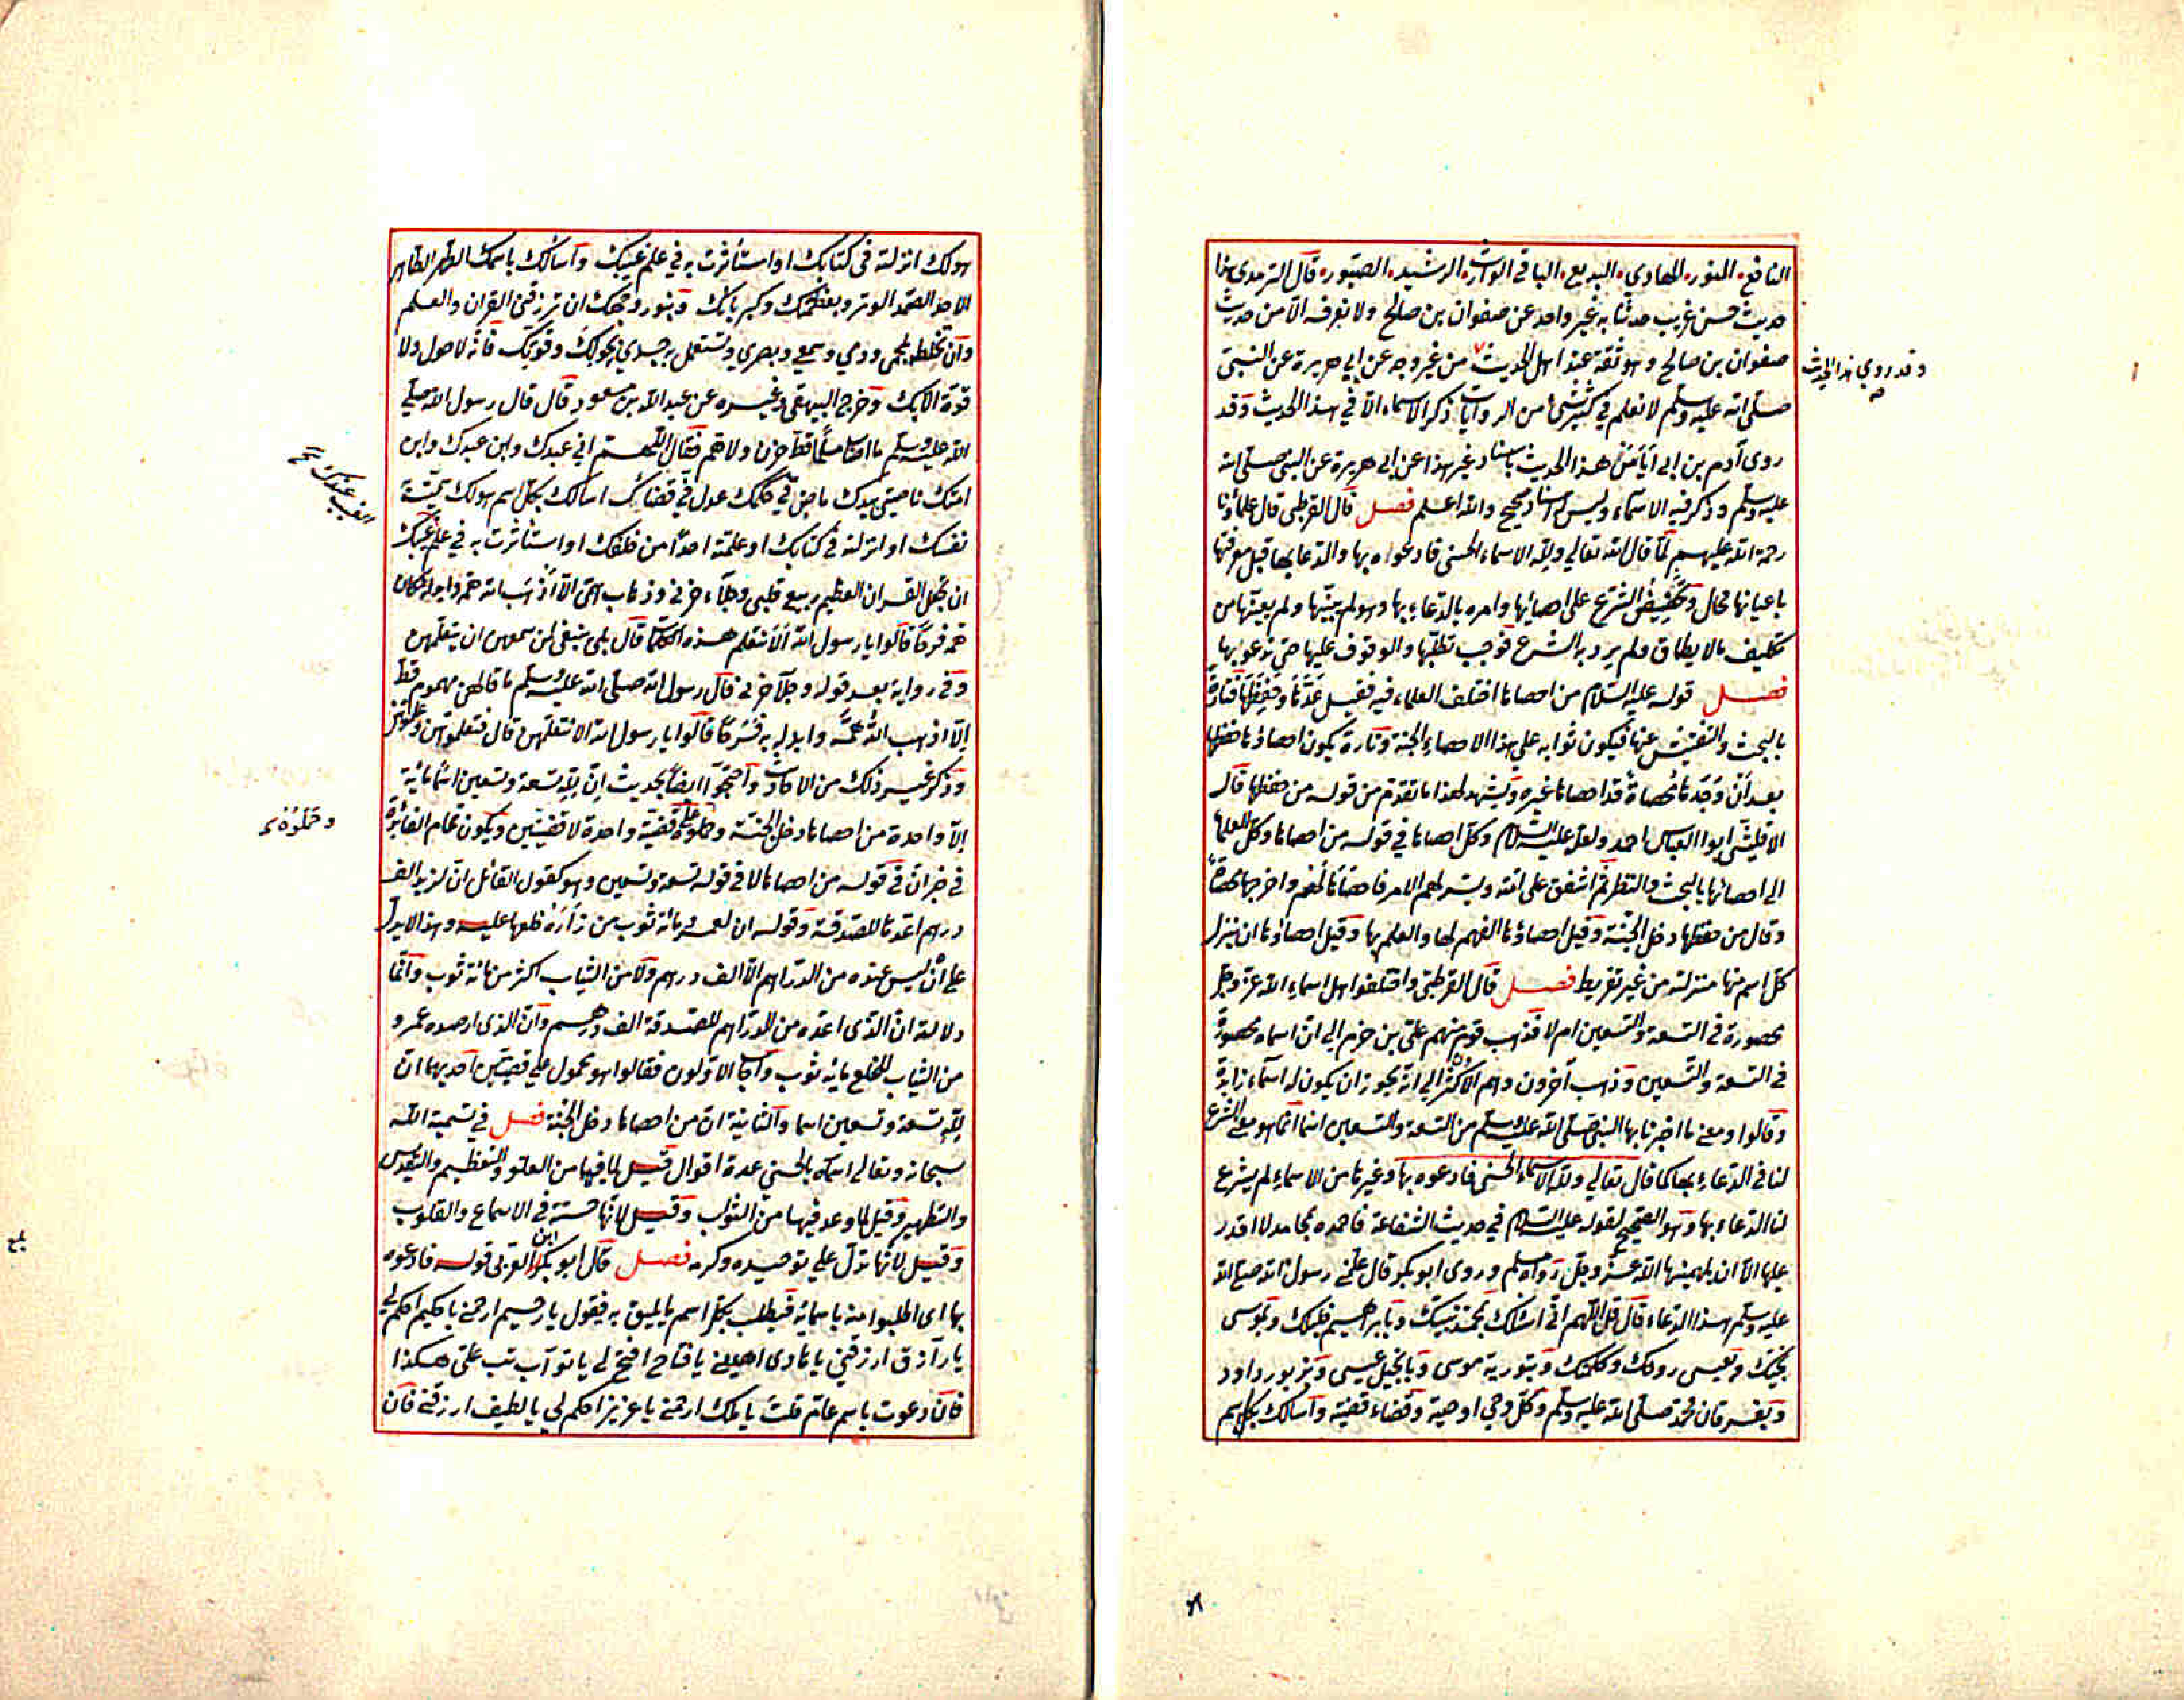 النافع، النور، الهادي، البديع، الباقي، الوارث، الرشيد، الصبور، قال الترمذي هذا
حديث حسن غريب حدثنا به غير واحد عن صفوان بن صالح ولا نعرفه الا من حديث
صفوان بن صالح وهو ثقة عند اهل الحديث من غير وجه عن ابي هريرة عن النبي
وقد روي هذا الحديث
صلى الله عليه وسلم لا نعلم في كثير شئ من الروايات ذكر الاسماء الا في هذا الحديث وقد
روى آدم بن ابي اياس هذا الحديث باسناد غير هذا عن ابي هريرة عن النبي صلى الله
عليه وسلم وذكر فيه الاسماء وليس له اسناد صحيح والله اعلم فصل قال القرطبي قال علماؤنا
رحمة الله عليهم لما قال الله تعالى ولله الاسماء الحسنى فادعوه بها والدعا بها قبل معرفتها
باعيانها محال وتحضيض الشرع على احصائها وامره بالدعاء بها وهو لم يبينها ولم يعينها من
تكليف مالا يطاق ولم يرد به الشرع فوجب تطلبها والوقوف عليها حتى يدعو بها
فصل قوله عليه السلام من احصاها اختلف العلماء فيه فقيل عدها وحفظها فتارة
بالبحث والتفتيش عنها فيكون ثوابه على هذا الاحصاء الجنة وتارة يكون احصاؤها حفظها
بعد ان وجدها محصاة قد احصاها غيره ويشهد لهذا ما تقدم من قوله من حفظها قال
الاقليشي ابو العباس احمد ولعله عليه السلام وكل احصاها في قوله من احصاها وكل العلماء
الى احصائها بالبحث والنظر ثم اشفق على امته ويسر لهم الامر فاحصاها لهم واخرجها محصاة
وقال من حفظها دخل الجنة وقيل احصاؤها الفهم لها والعلم بها وقيل احصاؤها ان ينزل
كل اسم منها منزلته من غير تفريط فصل قال القرطبي واختلفوا هل اسماء الله عز وجل
محصورة في التسعة والتسعين ام لا فذهب قوم منهم علي بن حزم الى ان اسماه محصورة
في التسعة والتسعين وذهب آخرون وهم الاكثر الى انه يجوز ان يكون له اسماء زايدة
وقالوا ومعنى ما اخبرنا بها النبي صلى الله عليه وسلم من التسعة والتسعين اسما انما هو معنى الشرع
لنا في الدعاء بها كما قال تعالى ولله الاسماء الحسنى فادعوه بها وغيرها من الاسماء لم يشرع
لنا الدعاء بها وهو الصحيح لقوله عليه السلام في حديث الشفاعة فاحمده بمحامد لا اقدر
عليها الا ان يلهمنيها الله عز وجل رواه مسلم وروى ابو بكر قال علمني رسول الله صلى الله
عليه وسلم هذا الدعاء قال قل اللهم اني اسئلك بمحمد نبيك وبابراهيم خليلك وبموسى
نجيك وبعيسى روحك وكلمتك وبتورية موسى وبانجيل عيسى وبزبور داود
وبفرقان محمد صلى الله عليه وسلم وكل وحي اوحيته وقضاء قضيته واسألك بكل اسم
هو لك انزلته في كتابك او استأثرت به في علم غيبك واسألك باسمك الطهر الطاهر
الاحد الصمد الوتر وبعظمتك وكبريائك وبنور وجهك ان ترزقني القران والعلم
وان تخلطه بلحمي ودمي وسمعي وبصري وتستعمل به جسدي بحولك وقوتك فانه لا حول ولا
قوة الا بك وخرج البيهقي وغيره عن عبد الله بن مسعود قال قال رسول الله صلى
الله عليه وسلم ما اصاب مسلما قط حزن ولا هم فقال اللهم اني عبدك وابن عبدك وابن
امتك ناصيتي بيدك ماض في حكمك عدل في قضاؤك اسالك بكل اسم هو لك سميت به
الغيب عندك
نفسك او انزلته في كتابك او علمته احدا من خلقك او استأثرت به في علم غيبك
ان تجعل القران العظيم ربيع قلبي وجلاء حزني وذهاب همي الا اذهب الله همه وابدله مكان
همه فرحا قالوا يا رسول الله الا نتعلم هذه الكلمات قال بلى ينبغي لمن سمعهن ان يتعلمهن
وفي رواية بعد قوله وجلا حزني قال رسول الله صلى الله عليه وسلم ما قالهن مهموم قط
الا اذهب الله همه وابدله به فرحا قالوا يا رسول الله الا نتعلمهن قال فتعلموهن وعلموهن
وذكر غير ذلك من الاحاديث واحتجوا ايضا بحديث ان لله تسعة وتسعين اسما مائة
الا واحدة من احصاها دخل الجنة وحملوه على قضية واحدة لا قضيتين ويكون تمام الفائدة
وحملوه
في خبر ان في قوله من احصاها لا في قوله تسعة وتسعين وهو كقول القائل ان لزيد الف
درهم اعدها للصدقة وقوله ان لعمرو مائة ثوب من زاره خلعها عليه وهذا لا يدل
على ان ليس عنده من الدراهم الا الف درهم ولا من الثياب اكثر من مائة ثوب وانما
دلالته ان الذي اعده من الدراهم للصدقة الف درهم وان الذي ارصده عمرو
من الثياب للخلع مائة ثوب واجاب الاولون فقالوا هو محمول على قضيتين احديهما ان
لله تسعة وتسعين اسما والثانية ان من احصاها دخل الجنة فصل في تسمية الله
سبحانه وتعالى اسماءه بالحسنى عدة اقوال قيل لما فيها من العلو والتعظيم والتقديس
والتطهير وقيل لما وعد فيها من الثواب وقيل لانها حسنة في الاسماع والقلوب
وقيل لانها تدل على توحيده وكرمه فصل قال ابو بكر ابن العربي قوله فادعوه
بها اي اطلبوا منه باسمائه فيطلب بكل اسم ما يليق به فيقول يا رحيم ارحمني يا حكيم احكم لي
يا رازق ارزقني يا هادي اهدني يا فتاح افتح لي يا تواب تب علي هكذا
فان دعوت باسم عام قلت يا ملك ارحمني يا عزيز احكم لي يا لطيف ارزقني فان
بلغ